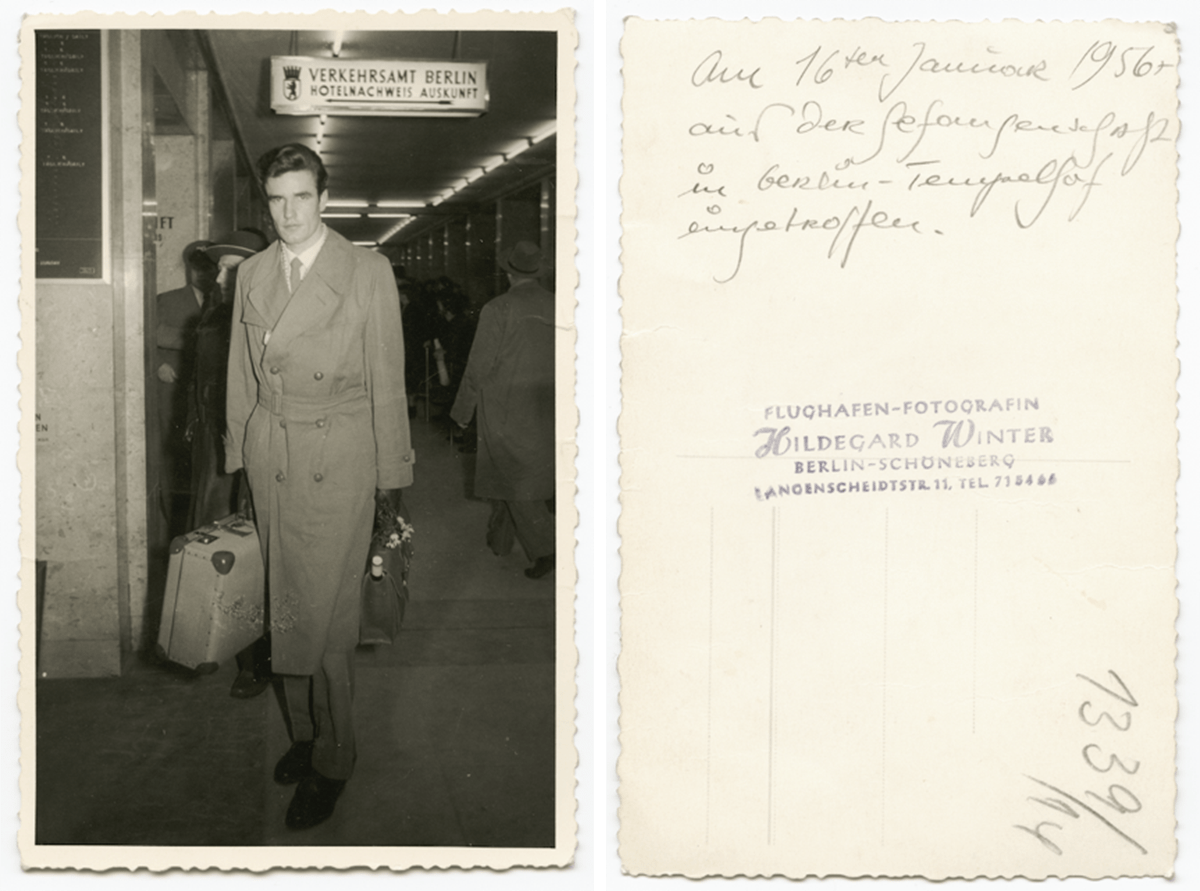 VERKEHRSAMT BERLIN
HOTELNACHWEIS AUSKUNFT
Am 16ten Januar 1956
aus der Gefangenschaft
in Berlin-Tempelhof
eingetroffen.
FLUGHAFEN-FOTOGRAFIN
HILDEGARD WINTER
BERLIN-SCHÖNEBERG
LANGENSCHEIDTSTR. 11, TEL. 71 54 66
1339/14